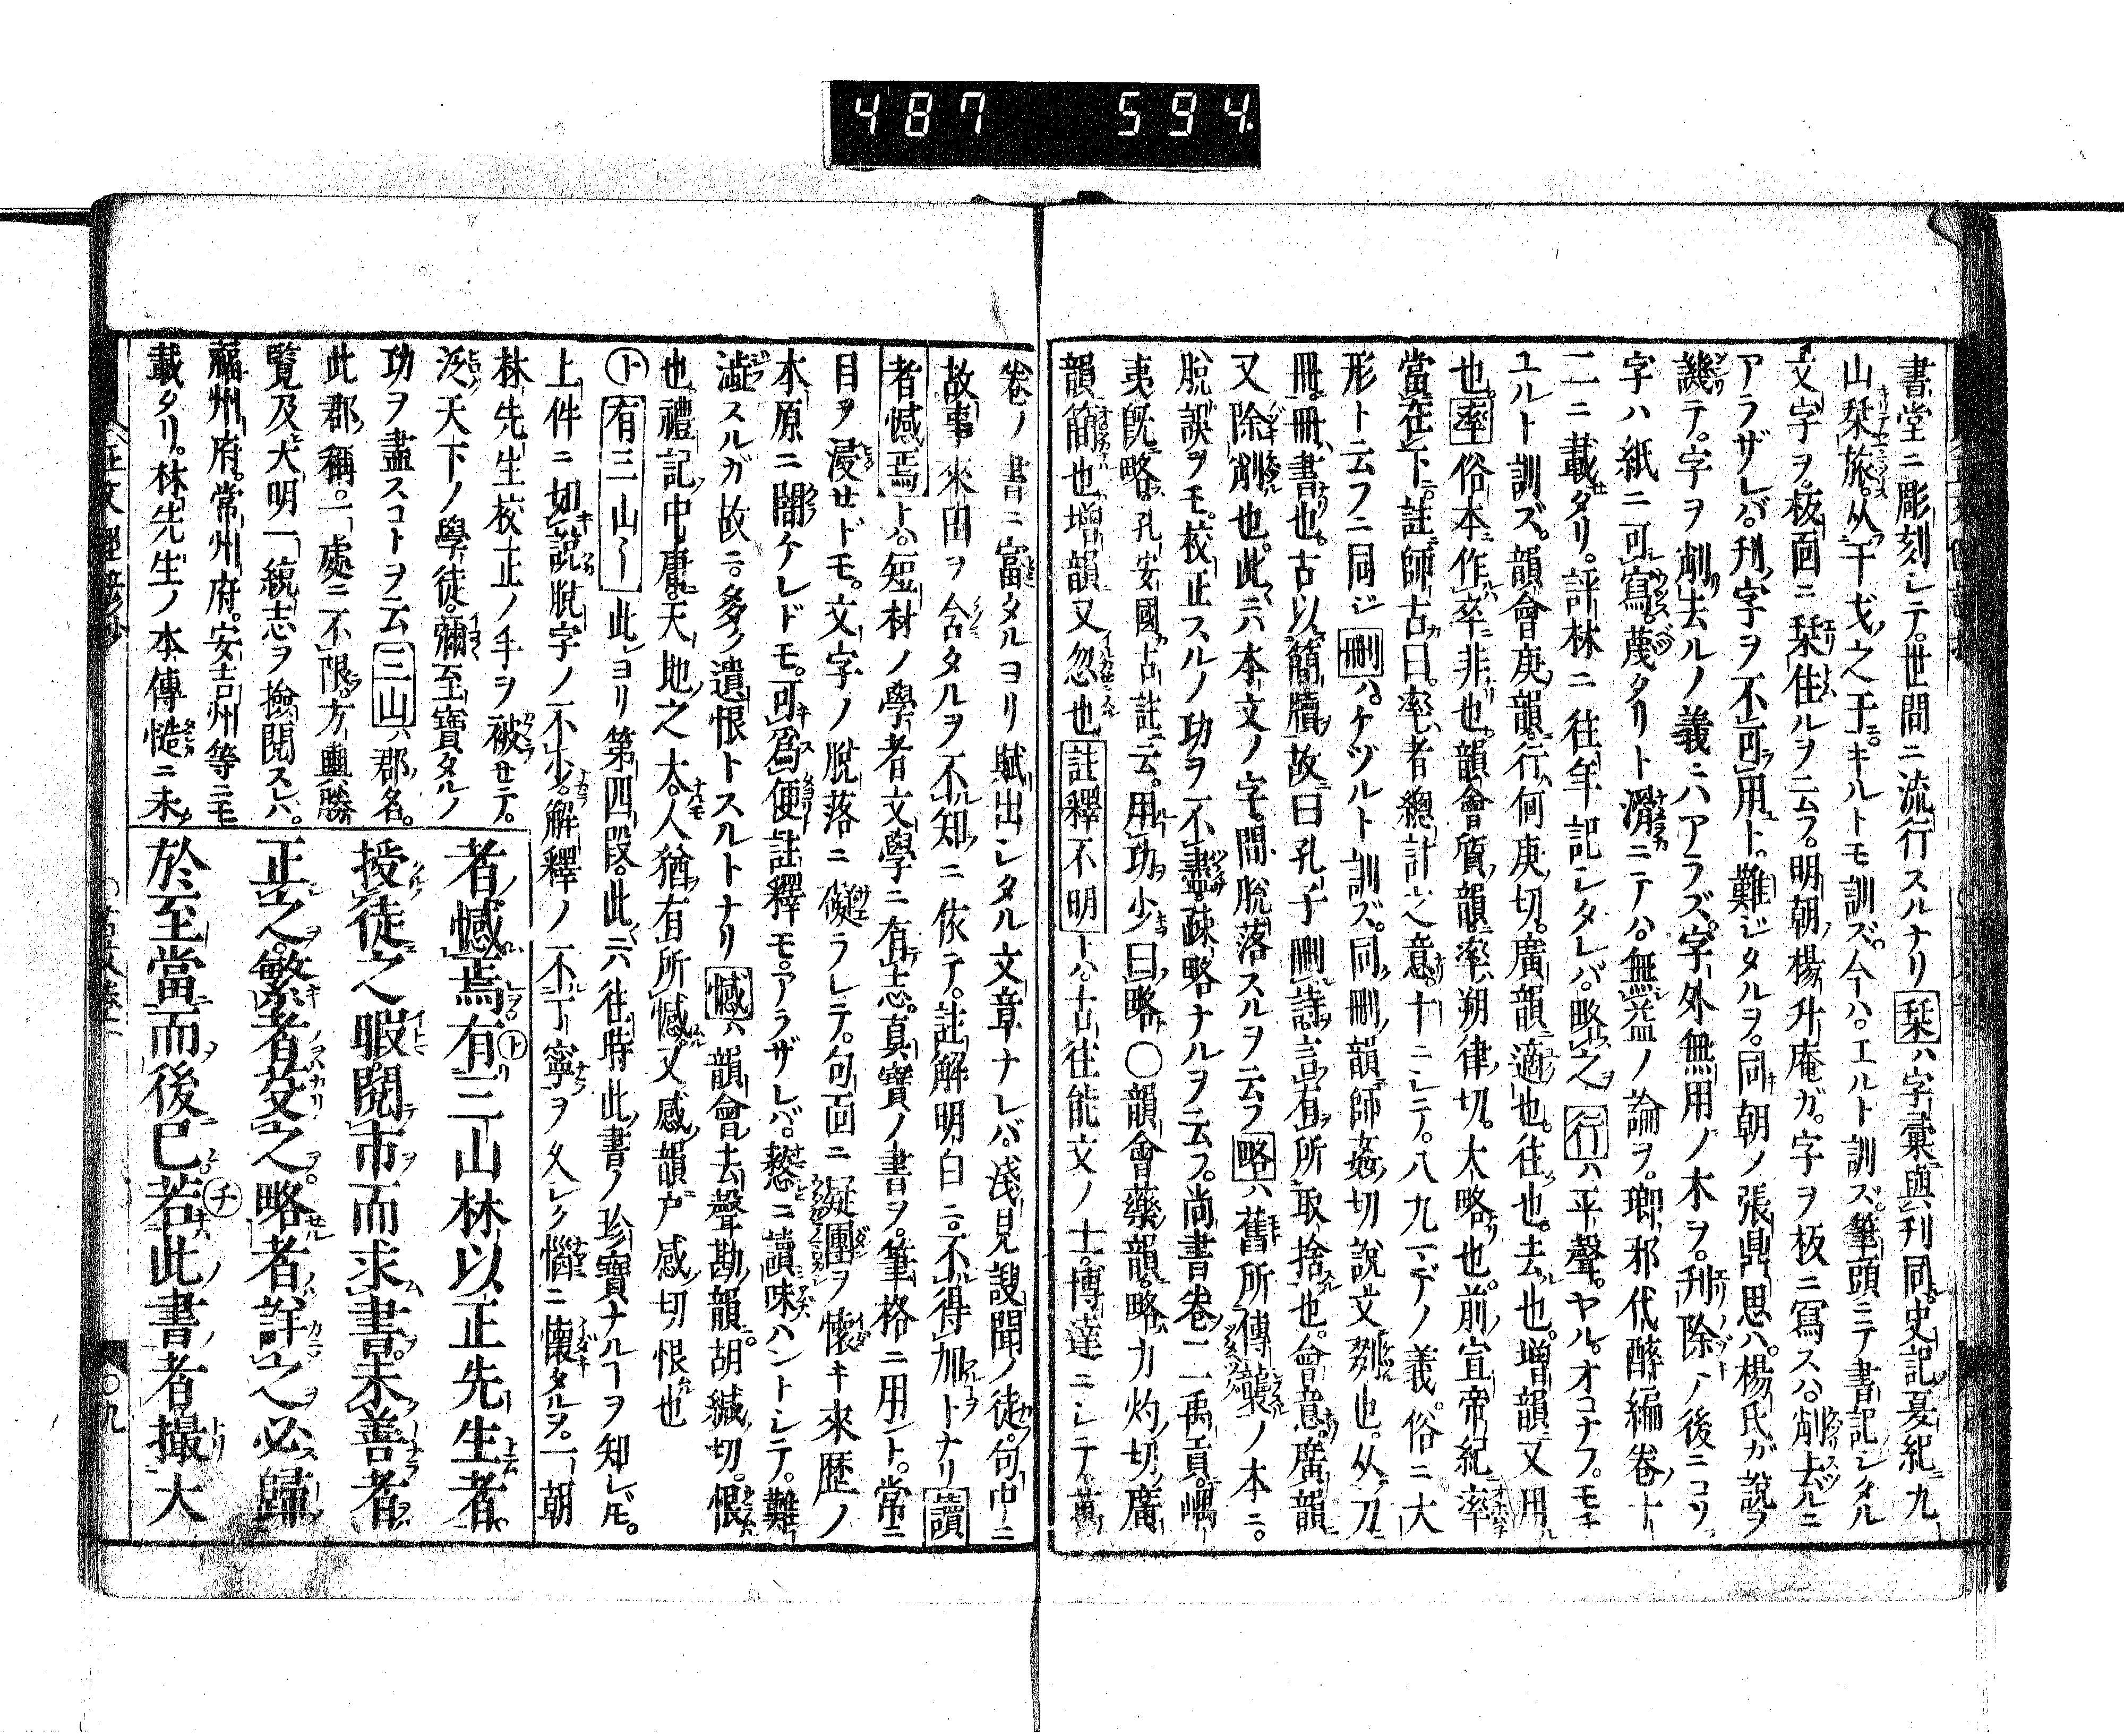 487 594.
書堂ニ彫刻シテ。世間ニ流行スルナリ栞ハ字彙與刊同。史記夏紀ニ九
山栞旅。从干戈之干。キルトモ訓ズ。今ハ。ヱルト訓ズ。筆頭ニテ書記シタル
文字ヲ。板面ニ栞住ルヲ云フ。明朝楊升庵ガ。字ヲ板ニ寫スハ。削去ルニ
アラザレバ。刋字ヲ不可用ト。難ジタルヲ。同朝ノ張鼎思ハ。楊氏ガ說ヲ
譏テ。字ヲ削去ルノ義ニハアラズ。字外無用ノ木ヲ。刋除テノ後ニコソ
字ハ紙ニ可寫。蔑タリト灂ニテハ。無益ノ論ヲ。瑯邪代醉編卷十
二ニ載タリ。評林ニ往年記シタレバ。略之行ハ平聲。ヤル。オコナフ。モチ
ユルト訓ズ。韻會庚韻。行何庚切。廣韻適也。往也。去也。增韻又用
也。率俗本作卒非也。韻會質韻。率朔律切。大略也。前宣帝紀率
當在下。註師古曰。率者總計之意。十ニシテ。八九マデノ義。俗ニ大
形ト云フニ同ジ刪ハ。ケヅルト訓ズ。同刪韻師姦切說文剟也。从刀
冊。冊書也。古以簡牘故曰孔子刪詩。言有所取捨也。會意。廣韻
又除削也。此ニハ本文ノ字。間脫落スルヲ云フ略ハ舊所傳襲ノ本ニ。
脫誤ヲモ。校正スルノ功ヲ不盡疎略ナルヲ云フ。尚書卷二禹貢。嵎
夷既略。孔安國古註云。用功少曰略〇韻會藥韻。略力灼切。廣
韻簡也增韻又忽也註釋不明トハ。古往能文ノ士。博達ニシテ。萬
卷ノ書ニ富タルヨリ賦出シタル文章ナレバ。淺見謏聞ノ徒。句中ニ
故事來由ヲ含タルヲ不知ニ依テ。註解明白ニ。不得加トナリ讀
者憾焉トハ。短材ノ學者文學ニ有志。眞寶ノ書ヲ。筆格ニ用ント。常ニ
目ヲ浸セドモ。文字ノ脫落ニ礙ラレテ。句面ニ疑團ヲ懷キ來歷ノ
本原ニ闇ケレドモ。可爲便註釋モ。アラザレバ。憗ニ讀味ハントシテ。難
澁スルガ故ニ。多ク遺恨トスルトナリ憾ハ韻會去聲勘韻胡緘切。恨
也。禮記中庸。天地之大。人猶有所憾。又感韻戸感切恨也
㋣有三山〱此ヨリ第四段。此ニハ往時此書ノ珍寶ナルヿヲ知レ𪜈。
上件ニ如說脫字ノ不少。解釋ノ不丁寧ヲ久シク惱ニ懷タルヲ。一朝
林先生校正ノ手ヲ被セテ。
泛天下ノ學徒。彌至寶タルノ
功ヲ盡スコトヲ云三山ハ郡名。
此郡稱。一處ニ不限。方輿勝
覽及大明一統志ヲ撿閱スレバ。
福州府。常州府。安吉州等ニモ
載タリ。林先生ノ本傳慥ニ未
者憾焉有㋣三山林以正先生者
授徒之暇。閱市而求書。未善者
正之。繁者芟之。略者詳之必歸
於至當而後已㋠若此書者撮大